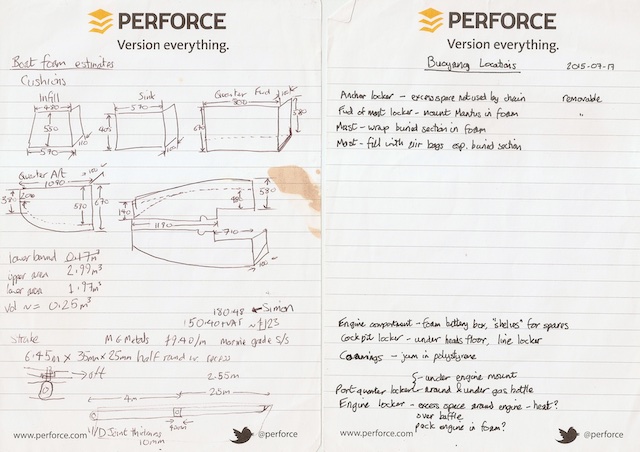 PERFORCE
Version everything.
Boat foam estimates
Cushions
Infill
480
550
590
110
Sink
570
405
100
Quarter Fwd
800
670
580
Quarter Aft
1090
200
380
590
670
580
190
1190
710
100
lower bound 0.17m³
upper area 2.99m³
lower area 1.97m³
Vol ~= 0.25m³
180.48 ← Simion
150.40+VAT ~£123
Strake M G Metals £7.40/m Marine grade S/S
6.45m × 35mm × 25mm half round in recess
→ aft
2.55m
4m
25m
40cm
10mm
www.perforce.com
@perforce
PERFORCE
Version everything.
Buoyancy Locations 2015-07-17
Anchor locker - excess space not used by chain removable
Fwd of mast locker - mount Mantus in foam "
Mast - wrap buried section in foam
Mast - fill with air bags esp. buried section
Engine compartment - foam battery box, "shelves" for spares
Cockpit locker - under heads floor, line locker
Coamings - jam in polystyrene
- under engine mount
Port quarter locker - around & under gas bottle
Engine Locker - excess space around engine - heat?
over baffle
pack engine in foam?
www.perforce.com
@perforce